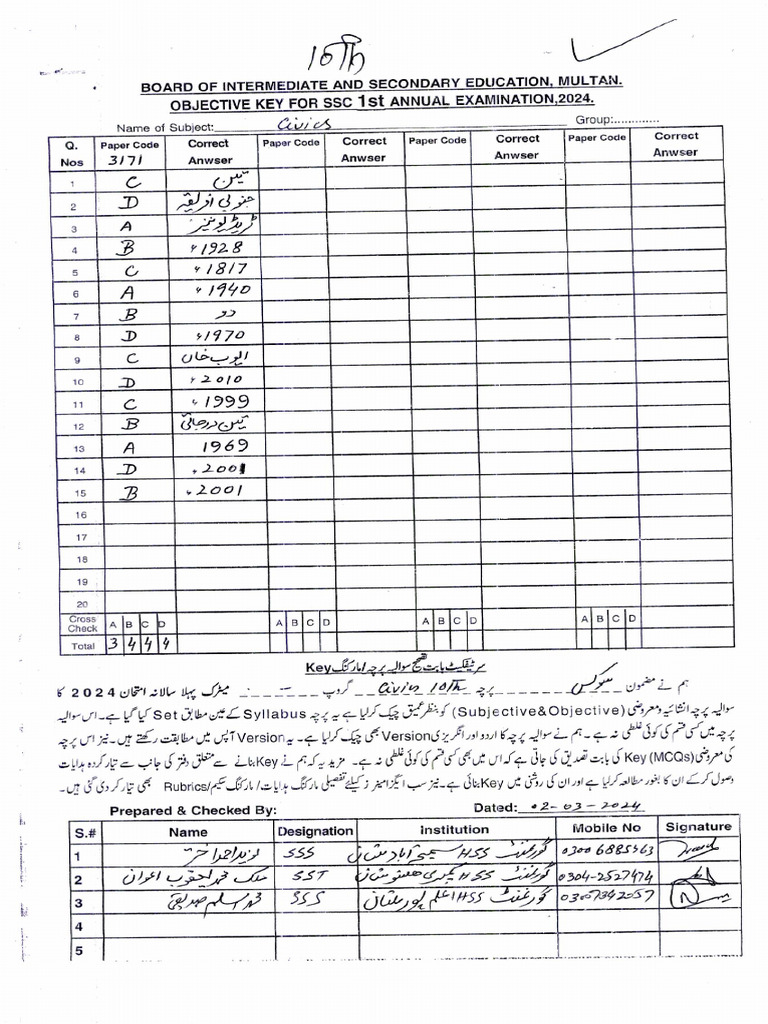 10Th
BOARD OF INTERMEDIATE AND SECONDARY EDUCATION, MULTAN.
OBJECTIVE KEY FOR SSC 1st ANNUAL EXAMINATION,2024.
Name of Subject: Civics Group:............
Q. Nos Paper Code 3171 Correct Anwser Paper Code Correct Anwser Paper Code Correct Anwser Paper Code Correct Anwser
1 C تین
2 D جنوبی افریقہ
3 A ٹریڈ یونینز
4 B ء1928
5 C ء1817
6 A ء1940
7 B دو
8 D ء1970
9 C ایوب خان
10 D ء2010
11 C ء1999
12 B تین درجاتی
13 A 1969
14 D ء2001
15 B ء2001
16
17
18
19
20
Cross Check A B C D A B C D A B C D A B C D
Total 3 4 4 4
سرٹیفکیٹ بابت تصحیح سوالیہ پرچہ / مارکنگ Key
ہم نے مضمون سوکس پرچہ Civics 10Th گروپ میٹرک پہلا سالانہ امتحان 2024 کا
سوالیہ پرچہ انشائیہ ومعروضی (Subjective&Objective) کو بنظر عمیق چیک کرلیا ہے یہ پرچہ Syllabus کے عین مطابق Set کیا گیا ہے۔ اس سوالیہ
پرچہ میں کسی قسم کی کوئی غلطی نہ ہے۔ ہم نے سوالیہ پرچہ کا اردو اور انگریزی Version بھی چیک کرلیا ہے۔ یہ Version آپس میں مطابقت رکھتے ہیں۔ نیز اس پرچہ
کی معروضی (MCQs) Key کی بابت تصدیق کی جاتی ہے کہ اس میں بھی کسی قسم کی کوئی غلطی نہ ہے۔ مزید یہ کہ ہم نے Key بنانے سے متعلق دفتر کی جانب سے تیار کردہ ہدایات
وصول کر کے ان کا بغور مطالعہ کرلیا ہے اور ان کی روشنی میں Key بنائی ہے۔ نیز سب ایگزامینرز کیلئے تفصیلی مارکنگ ہدایات / مارکنگ سکیم/Rubrics بھی تیار کر دی گئی ہیں۔
Prepared & Checked By: Dated: 02-03-2024
S.# Name Designation Institution Mobile No Signature
1 نوید احمد اختر SSS گورنمنٹ HSS سمیجہ آباد ملتان
2 ملک محمد یعقوب اعوان SST گورنمنٹ HSS ملتان 0304-2527474
3 محمد اسلم صدیقی SSS گورنمنٹ HSS اعلم پور ملتان 03007342057
4
5